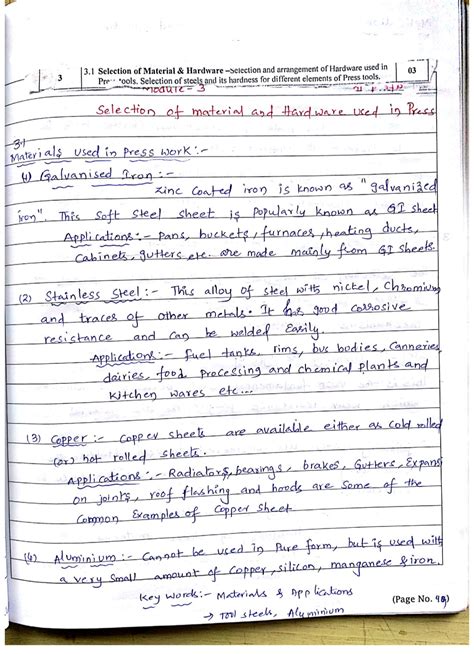 3 3.1 Selection of Material & Hardware –Selection and arrangement of Hardware used in 03
Press tools. Selection of steels and its hardness for different elements of Press tools.
module - 3
Selection of material and Hardware used in Press
3.1
Materials used in press work :-
(1) Galvanised Iron :-
Zinc coated iron is known as "galvanized
iron". This soft steel sheet is popularly known as GI sheet
Applications :- Pans, buckets, furnaces, heating ducts,
Cabinets, gutters etc. are made mainly from GI sheets.
(2) Stainless Steel :- This alloy of steel with nickel, Chromium
and traces of other metals. It has good corrosive
resistance and can be welded Easily.
Applications :- Fuel tanks, rims, bus bodies, Canneries,
dairies, food processing and chemical plants and
Kitchen wares etc...
(3) Copper :- Copper sheets are available either as cold rolled
(or) hot rolled sheets.
Applications :- Radiators, bearings, brakes, Gutters, Expans
on joints, roof flashing and hoods are Some of the
Common Examples of Copper Sheet
(4) Aluminium :- Cannot be used in Pure form, but is used with
a very Small amount of Copper, silicon, manganese & iron.
Key words :- Materials & Applications
→ Tool steels, Aluminium
(Page No. )